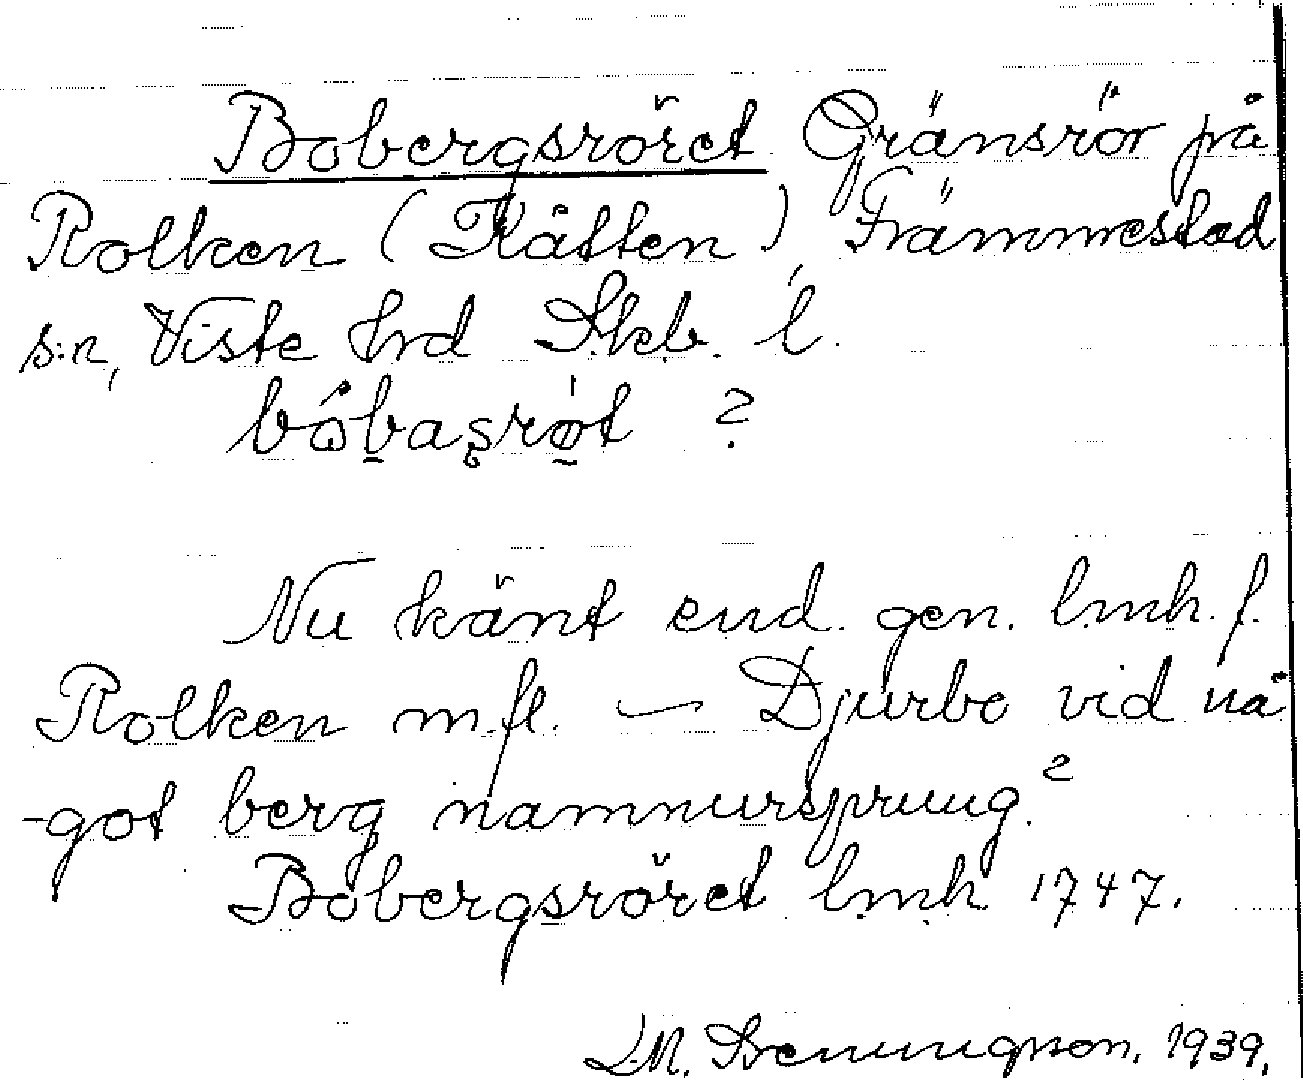 Bobergsröret Gränsrör på
Rolken (Kåtten), Främmestad
s:n, Viste hrd Skb. l.
bo̊bas̨røt ?
Nu känt end. gen. lmh. f.
Rolken m.fl. — Djurbo vid nå
-got berg namnursprung?
Bobergsröret lmh 1747.
L.M. Svenungsson. 1939.